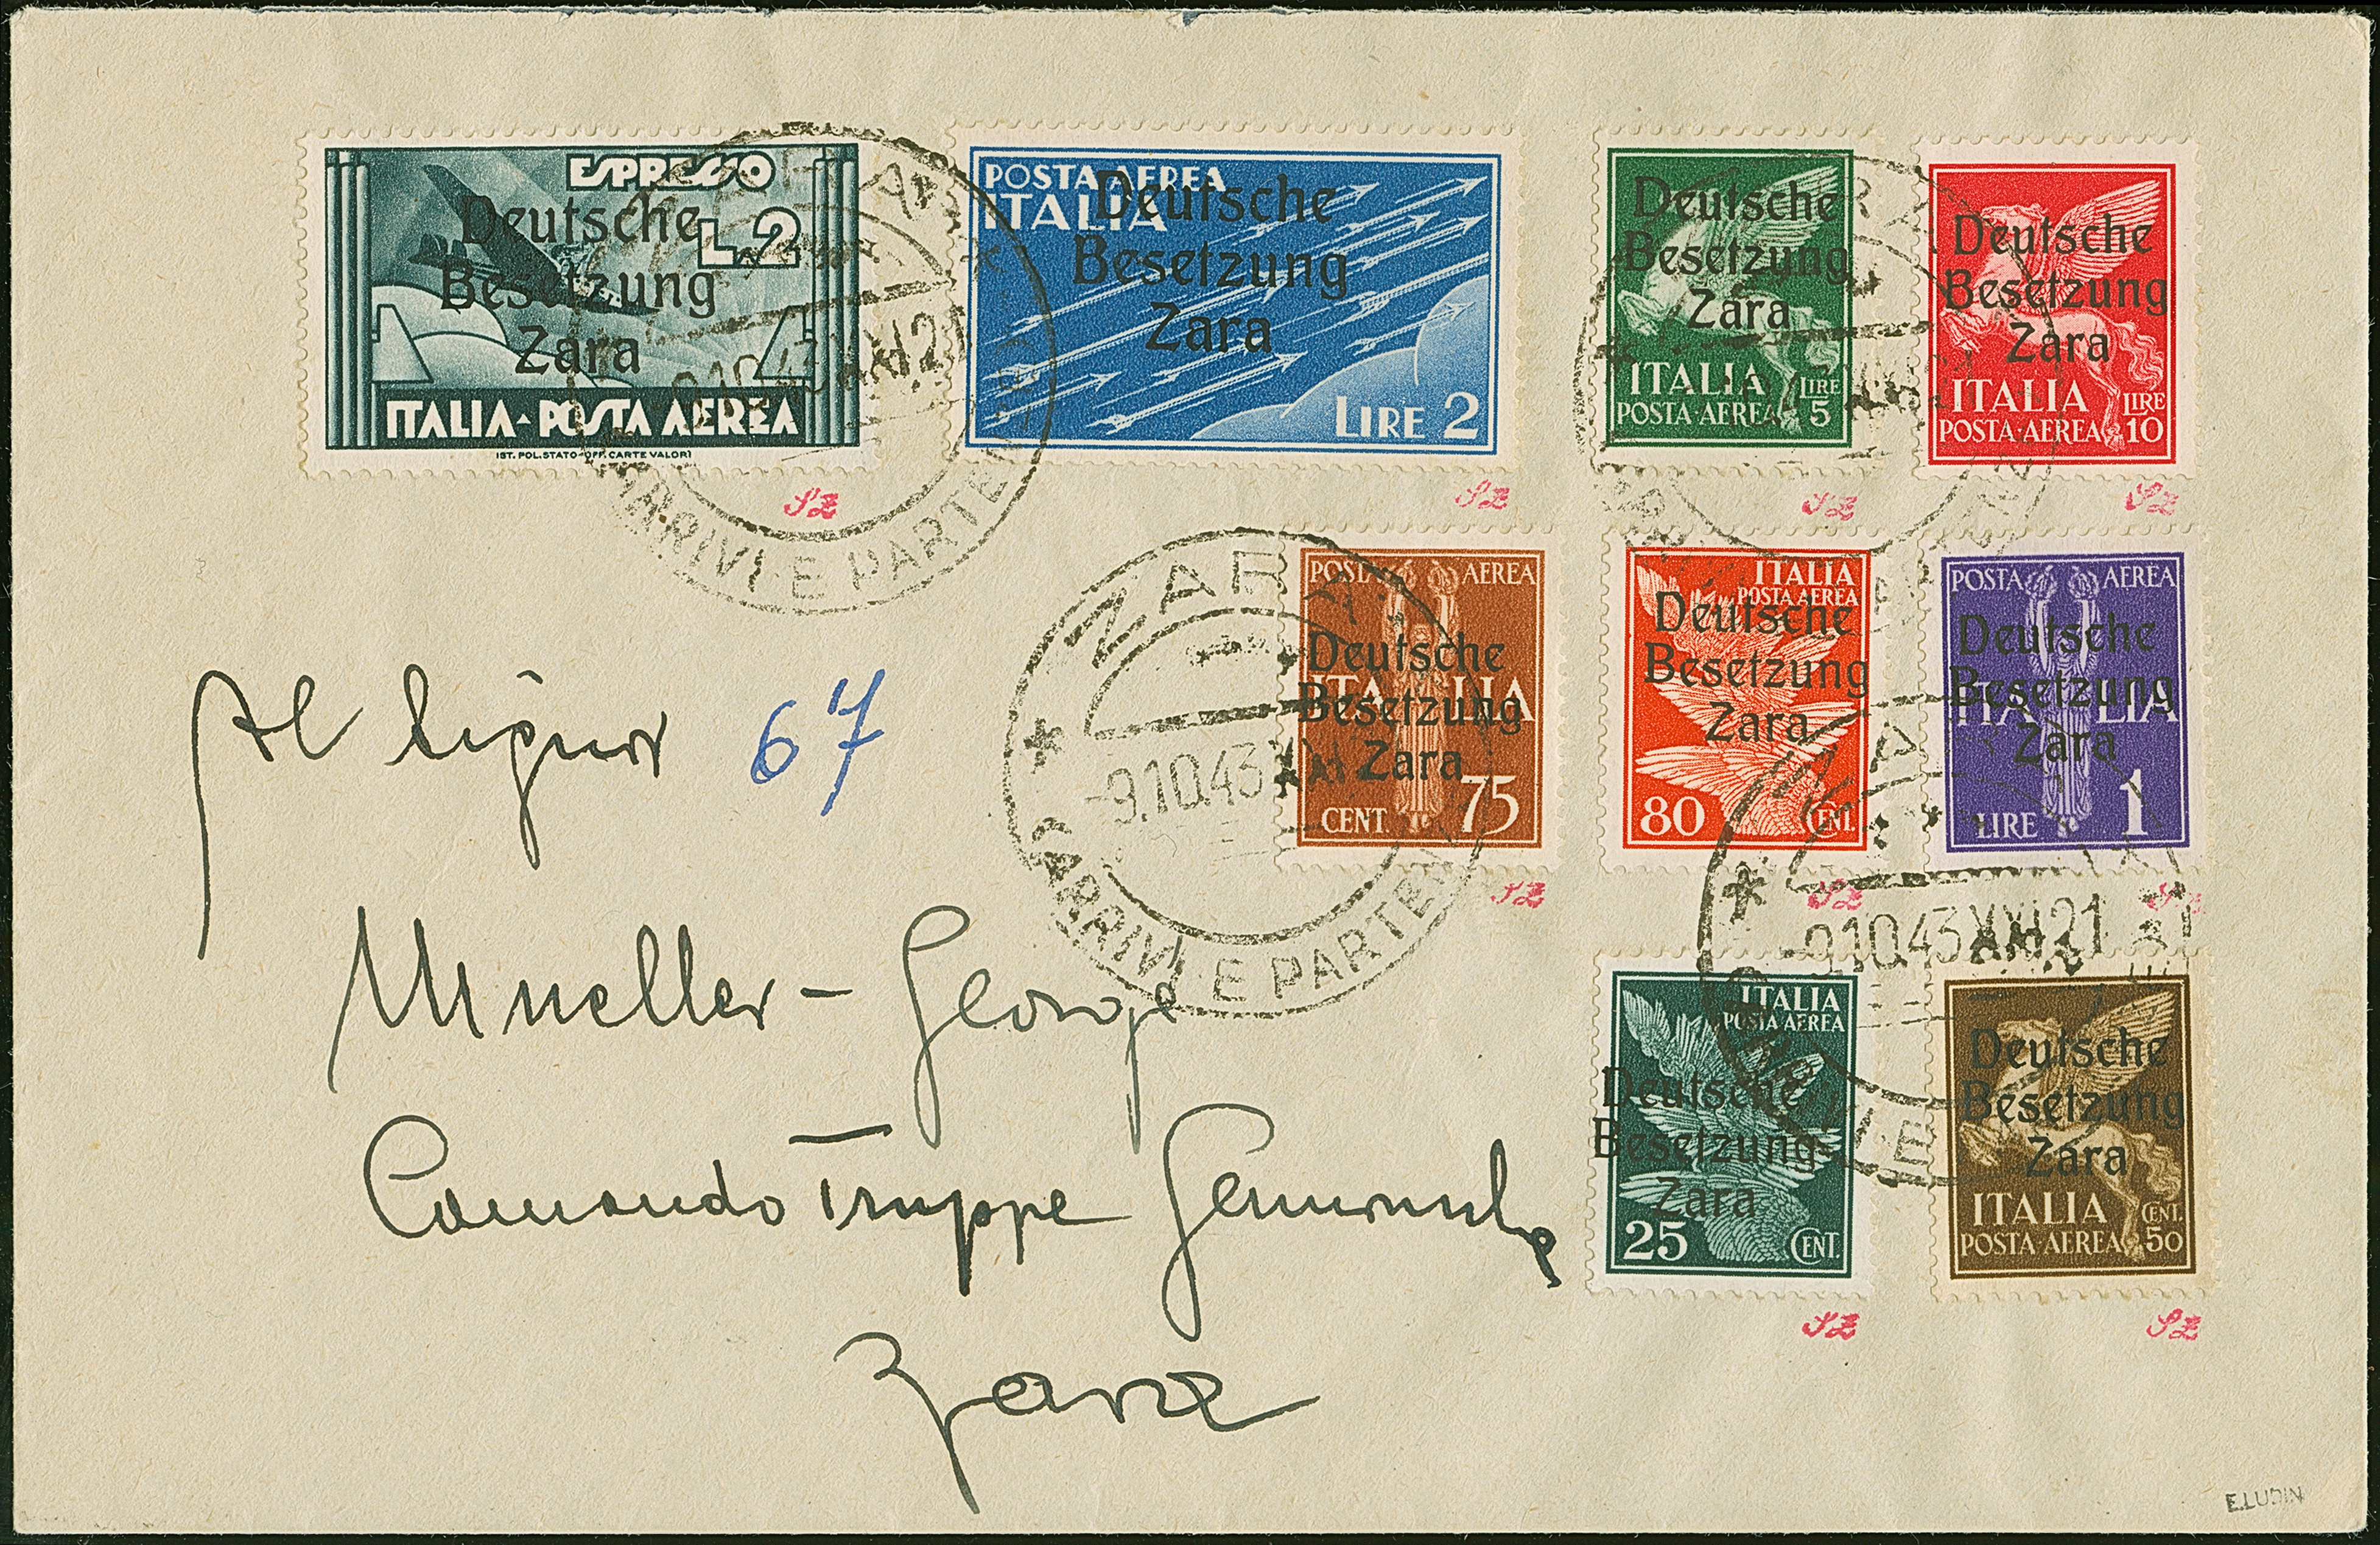 ESPRESSO
L.2
Deutsche
Besetzung
Zara
ITALIA-POSTA AEREA
IST. POL. STATO-OFF. CARTE VALORI
POSTA AEREA
ITALIA
Deutsche
Besetzung
Zara
LIRE 2
Deutsche
Besetzung
Zara
ITALIA LIRE
POSTA-AEREA 5
Deutsche
Besetzung
Zara
ITALIA LIRE
POSTA-AEREA 10
SZ
SZ
SZ
SZ
ARRIVI E PARTEN
POSTA AEREA
Deutsche
ITALIA
Besetzung
Zara
CENT. 75
ITALIA
POSTA AEREA
Deutsche
Besetzung
Zara
80 CENT.
POSTA AEREA
Deutsche
ITALIA
Besetzung
Zara
LIRE 1
SZ
SZ
SZ
ZARA
-9.10.43
ARRIVI E PARTEN
-9.10.43 XXI 21
ITALIA
POSTA AEREA
Deutsche
Besetzung
Zara
25 CENT.
Deutsche
Besetzung
Zara
ITALIA CENT.
POSTA-AEREA 50
SZ
SZ
Al Signor 67
Mueller - George
Comando Truppe
Zara
E.LUDIN